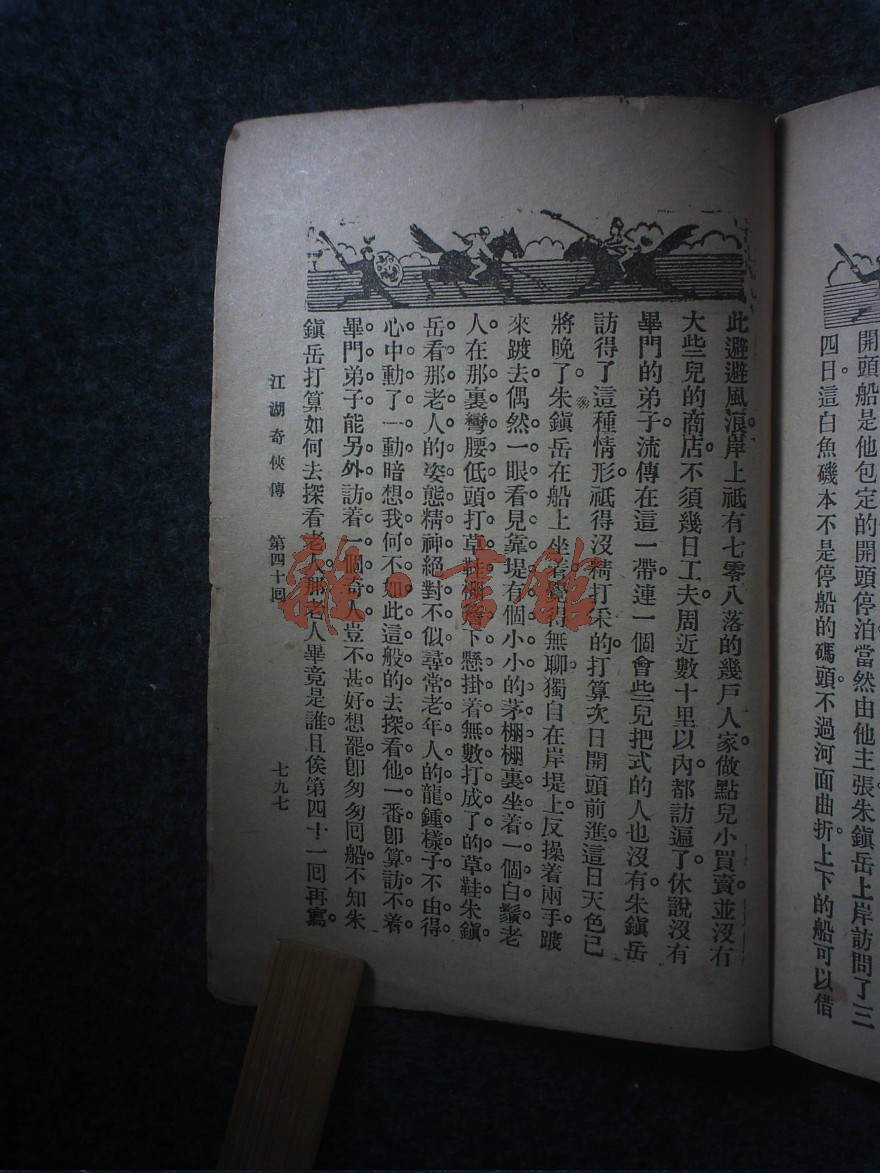 開頭船是他包定的開頭停泊當然由他主張朱鎭岳上岸訪問了三
四日這白魚磯本不是停船的碼頭不過河面曲折上下的船可以借
此避避風浪岸上祗有七零八落的幾戶人家做點兒小買賣並沒有
大些兒的商店不須幾日工夫周近數十里以內都訪遍了休說沒有
畢門的弟子流傳在這一帶連一個會些兒把式的人也沒有朱鎭岳
訪得了這種情形祗得沒精打采的打算次日開頭前進這日天色已
將晚了朱鎭岳在船上坐着覺得無聊獨自在岸堤上反操着兩手踱
來踱去偶然一眼看見靠堤有個小小的茅棚棚裏坐着一個白鬚老
人在那裏彎腰低頭打草鞋棚簷下懸掛着無數打成了的草鞋朱鎭
岳看那老人的姿態精神絕對不似尋常老年人的龍鍾樣子不由得
心中動了一動暗想我何不如此這般的去探看他一番卽算訪不着
畢門弟子能另外訪着一個奇人豈不甚好想罷卽匆匆囘船不知朱
鎭岳打算如何去探看老人那老人畢竟是誰且俟第四十一回再寫
江湖奇俠傳 第四十回 七九七
雜·書館